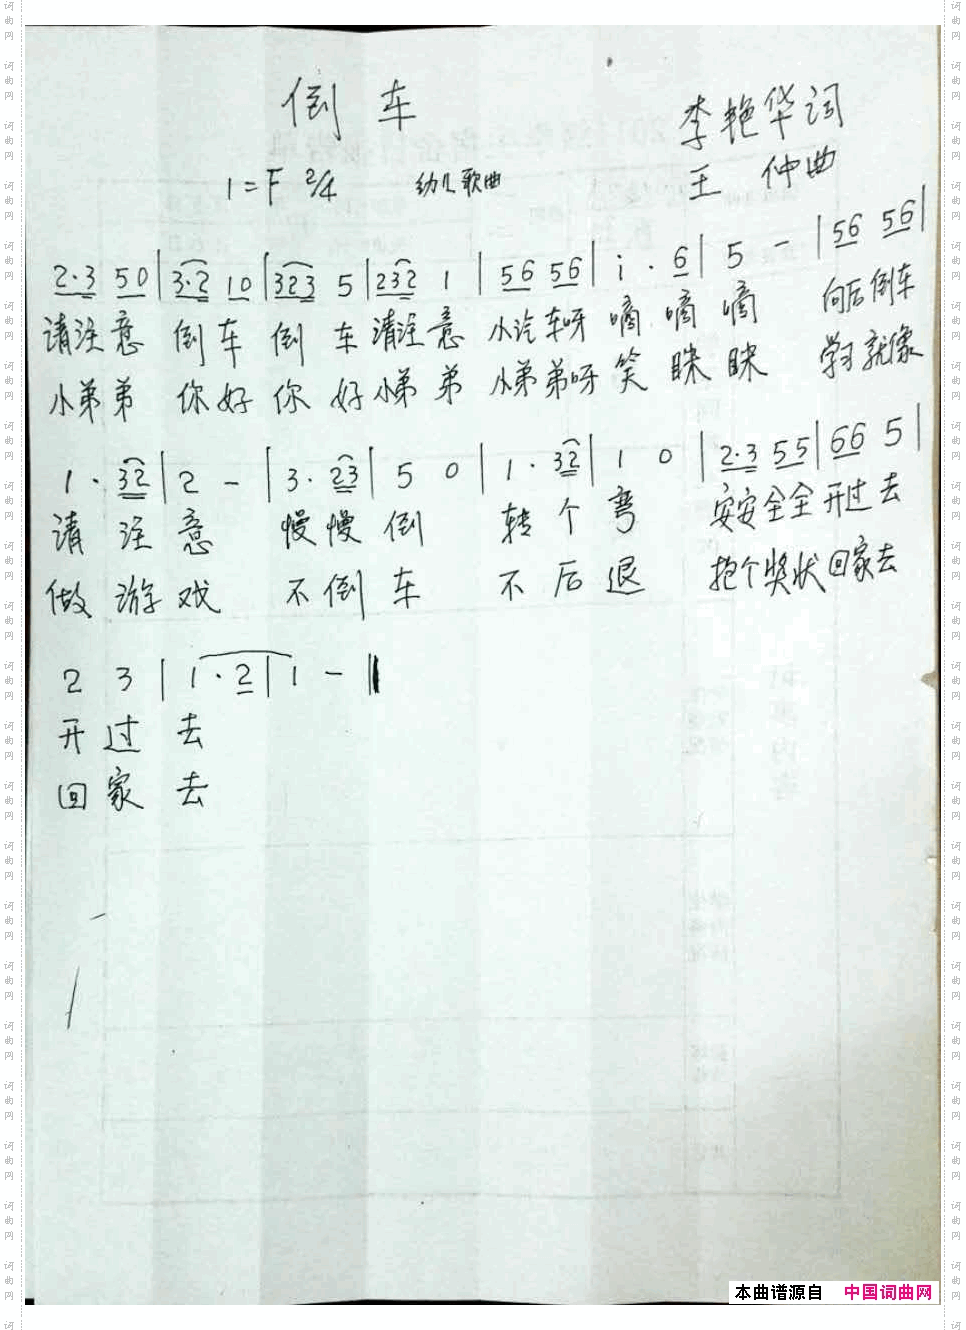 倒车
李艳华词
1=F 2/4 幼儿歌曲
王 仲曲
2·3 50|3·2 10|323 5|232 1|56 56|i·6|5 -|56 56|
请注意 倒车 倒 车 请注意 小汽车呀 嘀 嘀 嘀 向后倒车
小弟弟 你好 你 好 小弟 弟 小弟弟呀 笑 眯 眯 学习就像
1·32|2 -|3·23|5 0|1·32|1 0|2·3 55|66 5|
请 注 意 慢慢 倒 转 个 弯 安安全全 开过 去
做 游 戏 不倒 车 不 后 退 抱个奖状 回家去
2 3|1·2|1 -‖
开 过 去
回 家 去
本曲谱源自 中国词曲网